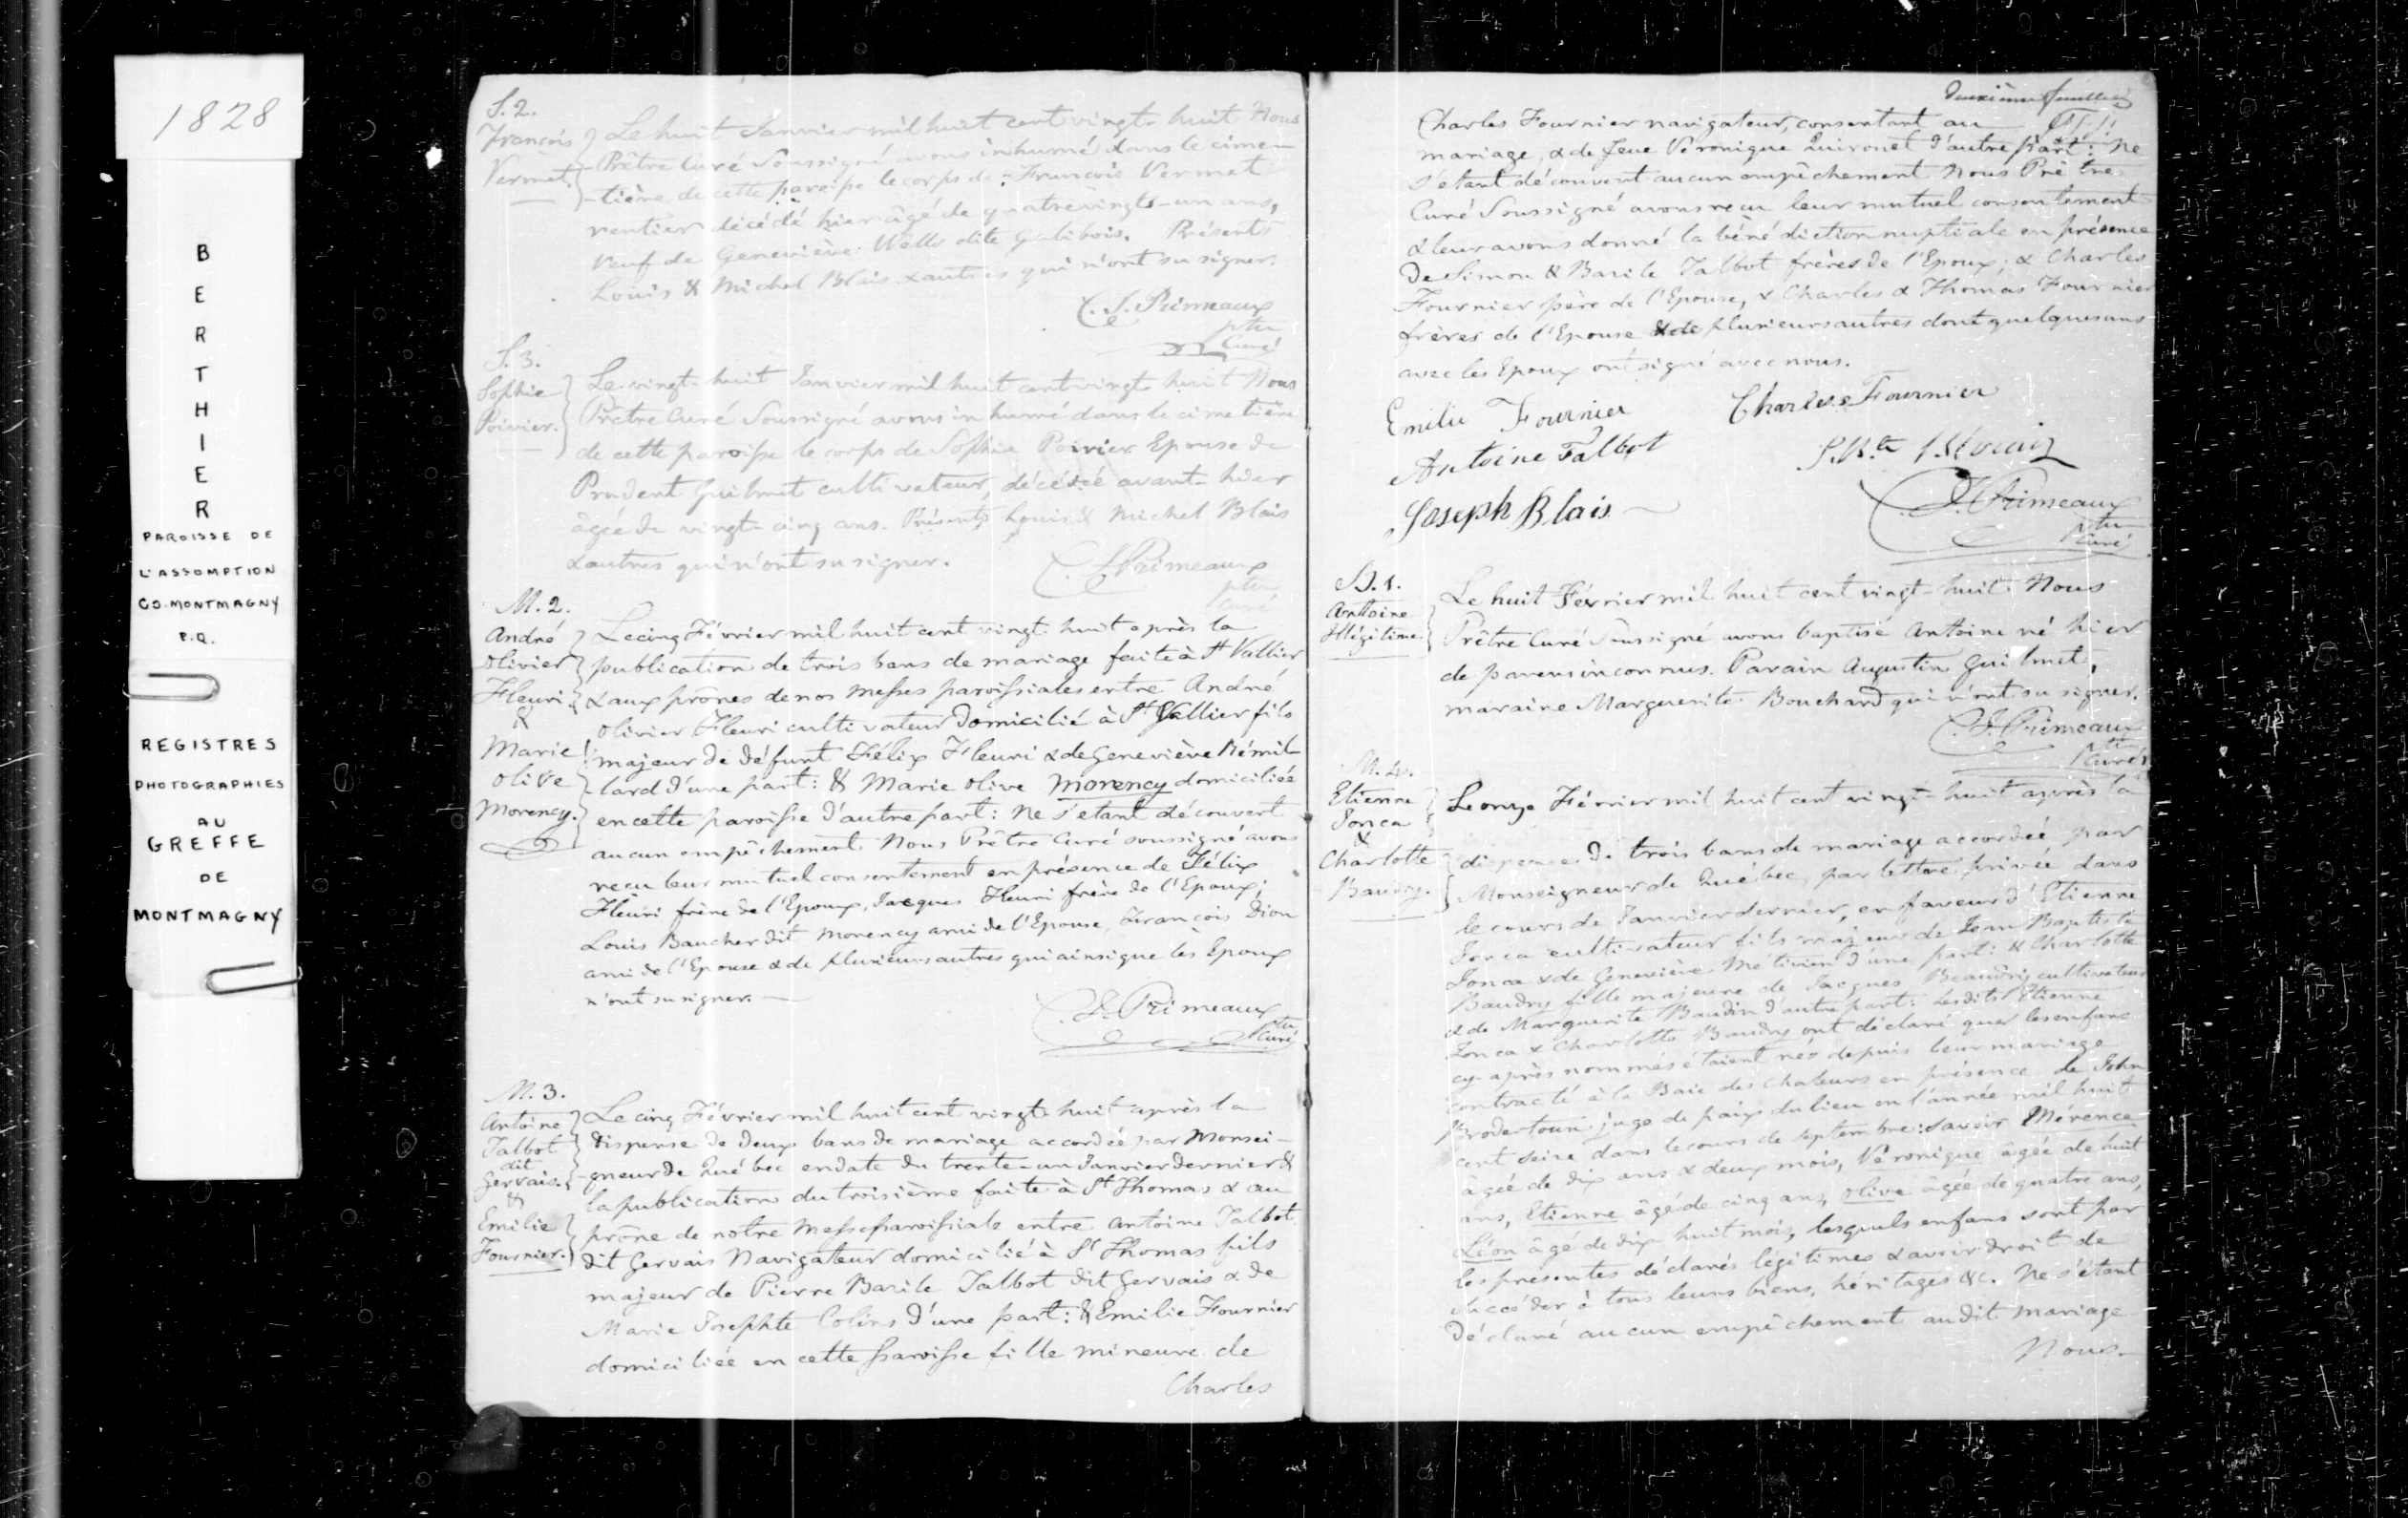 1828
BERTHIER
PAROISSE DE
L'ASSOMPTION
CO. MONTMAGNY
P.Q.
REGISTRES
PHOTOGRAPHIES
AU
GREFFE
DE
MONTMAGNY
S. 2.
François
Vermet.
Le huit Janvier mil huit cent vingt-huit Nous
Prêtre Curé Soussigné avons inhumé dans le cime-
-tière de cette paroisse le corps de François Vermet
rentier décédé hier âgé de quatrevingts-un ans,
veuf de Geneviève Wells dite Galibois. Présents
Louis & Michel Blais & autres qui n'ont su signer.
C. J. Primeaux
ptre
Curé
S. 3.
Sophie
Poirier.
Le vingt-huit Janvier mil huit cent vingt huit Nous
Prêtre Curé Soussigné avons inhumé dans le cimetière
de cette paroisse le corps de Sophie Poirier Epouse de
Prudent Guilmet cultivateur, décédée avant-hier
âgée de vingt-cinq ans. Présents Louis & Michel Blais
& autres qui n'ont su signer.
C. J. Primeaux
ptre
Curé
M. 2.
André
Olivier
Fleuri
&
Marie
Olive
Morency.
Le cinq Février mil huit cent vingt huit après la
publication de trois bans de mariage faite à St Vallier
& aux prônes de nos Messes paroissiales entre André
Olivier Fleuri cultivateur Domicilié à St Vallier fils
majeur de défunt Félix Fleuri & de Geneviève Rémil-
-lard d'une part: & Marie Olive Morency domiciliée
en cette paroisse d'autre part: Ne s'etant découvert
aucun empêchement Nous Prêtre Curé soussigné avons
reçu leur mutuel consentement en présence de Félix
Fleuri frère de l'Epoux, Jacques Fleuri frère de l'Epoux;
Louis Baucher dit Morency ami de l'Epouse, François Dion
ami de l'Epouse & de plusieurs autres qui ainsi que les Epoux
n'ont su signer.
C. J. Primeaux
Ptre
Curé
M. 3.
Antoine
Talbot
dit
Gervais.
&
Emilie
Fournier.
Le cinq Février mil huit cent vingt huit après la
Dispense de deux bans de mariage accordée par Monsei-
-gneur de Québec en date du trente-un Janvier dernier &
la publication du troisième faite à St Thomas & au
prône de notre Messe paroissiale entre Antoine Talbot
dit Gervais Navigateur domicilié à St Thomas fils
majeur de Pierre Basile Talbot dit Gervais & de
Marie Josephte Colins d'une part: & Emilie Fournier
domiciliée en cette paroisse fille mineure de
Charles
Deuxième feuillet
Charles Fournier navigateur, consentant au
mariage, & de feue Véronique Quirouet d'autre part: Ne
s'etant découvert aucun empêchement Nous Prêtre
Curé Soussigné avons reçu leur mutuel consentement
& leur avons donné la bénédiction nuptiale en présence
De Simon & Basile Talbot frères de l'Epoux; & Charles
Fournier père de l'Epouse, & Charles & Thomas Fournier
frères de l'Epouse & de plusieurs autres dont quelques uns
avec les Epoux ont signé avec nous.
Emilie Fournier
Charles Fournier
Antoine Talbot
Joseph Blais
J. Primeaux
ptre
Curé
B. 1.
Antoine
Illégitime.
Le huit Février mil huit cent vingt-huit Nous
Prêtre Curé Soussigné avons baptisé Antoine né hier
de parens inconnus. Parain Augustin Guilmet,
maraine Marguerite Bouchard qui n'ont su signer.
C. J. Primeaux
ptre
Curé
M. 4.
Etienne
Jonca
&
Charlotte
Baudry.
Le onze Février mil huit cent vingt-huit après la
dispense de trois bans de mariage accordée par
Monseigneur de Québec, par lettre privée dans
le cours de Janvier dernier, en faveur d'Etienne
Jonca cultivateur fils majeur de Jean Baptiste
Jonca & de Geneviève Métivier d'une part: & Charlotte
Baudry fille majeure de Jacques Beaudry cultivateur
& de Marguerite Baudin d'autre part: Lesdits Etienne
Jonca & Charlotte Baudry ont déclaré que les enfans
cy-après nommés étaient nés depuis leur mariage
contracté à la Baie des Chaleurs en présence de John
juge de paix du lieu en l'année mil huit
cent seize dans le cours de septembre: savoir Mérence
âgée de dix ans & deux mois, Véronique âgée de huit
ans, Etienne âgé de cinq ans, Olive âgée de quatre ans,
Léon âgé de dix huit mois, lesquels enfans sont par
les présentes déclarés légitimes & avoir droit de
succéder à tous leurs biens, héritages &c. Ne s'étant
déclaré aucun empêchement audit mariage
Nous